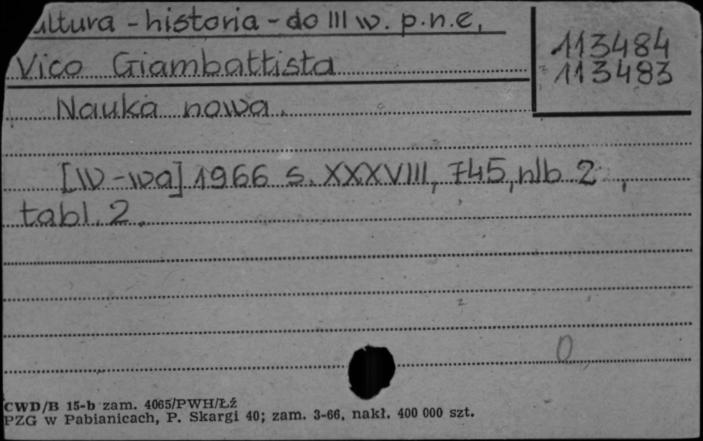 ultura - historia - do III w. p.n.e,
113484
Vico Giambattista
113483
Nauka nowa.
[W-wa] 1966 s. XXXVIII, 745, nlb 2 ,
tabl. 2.
0
CWD/B 15-b zam. 4065/PWH/Łź
PZG w Pabianicach, P. Skargi 40; zam. 3-66, nakł. 400 000 szt.